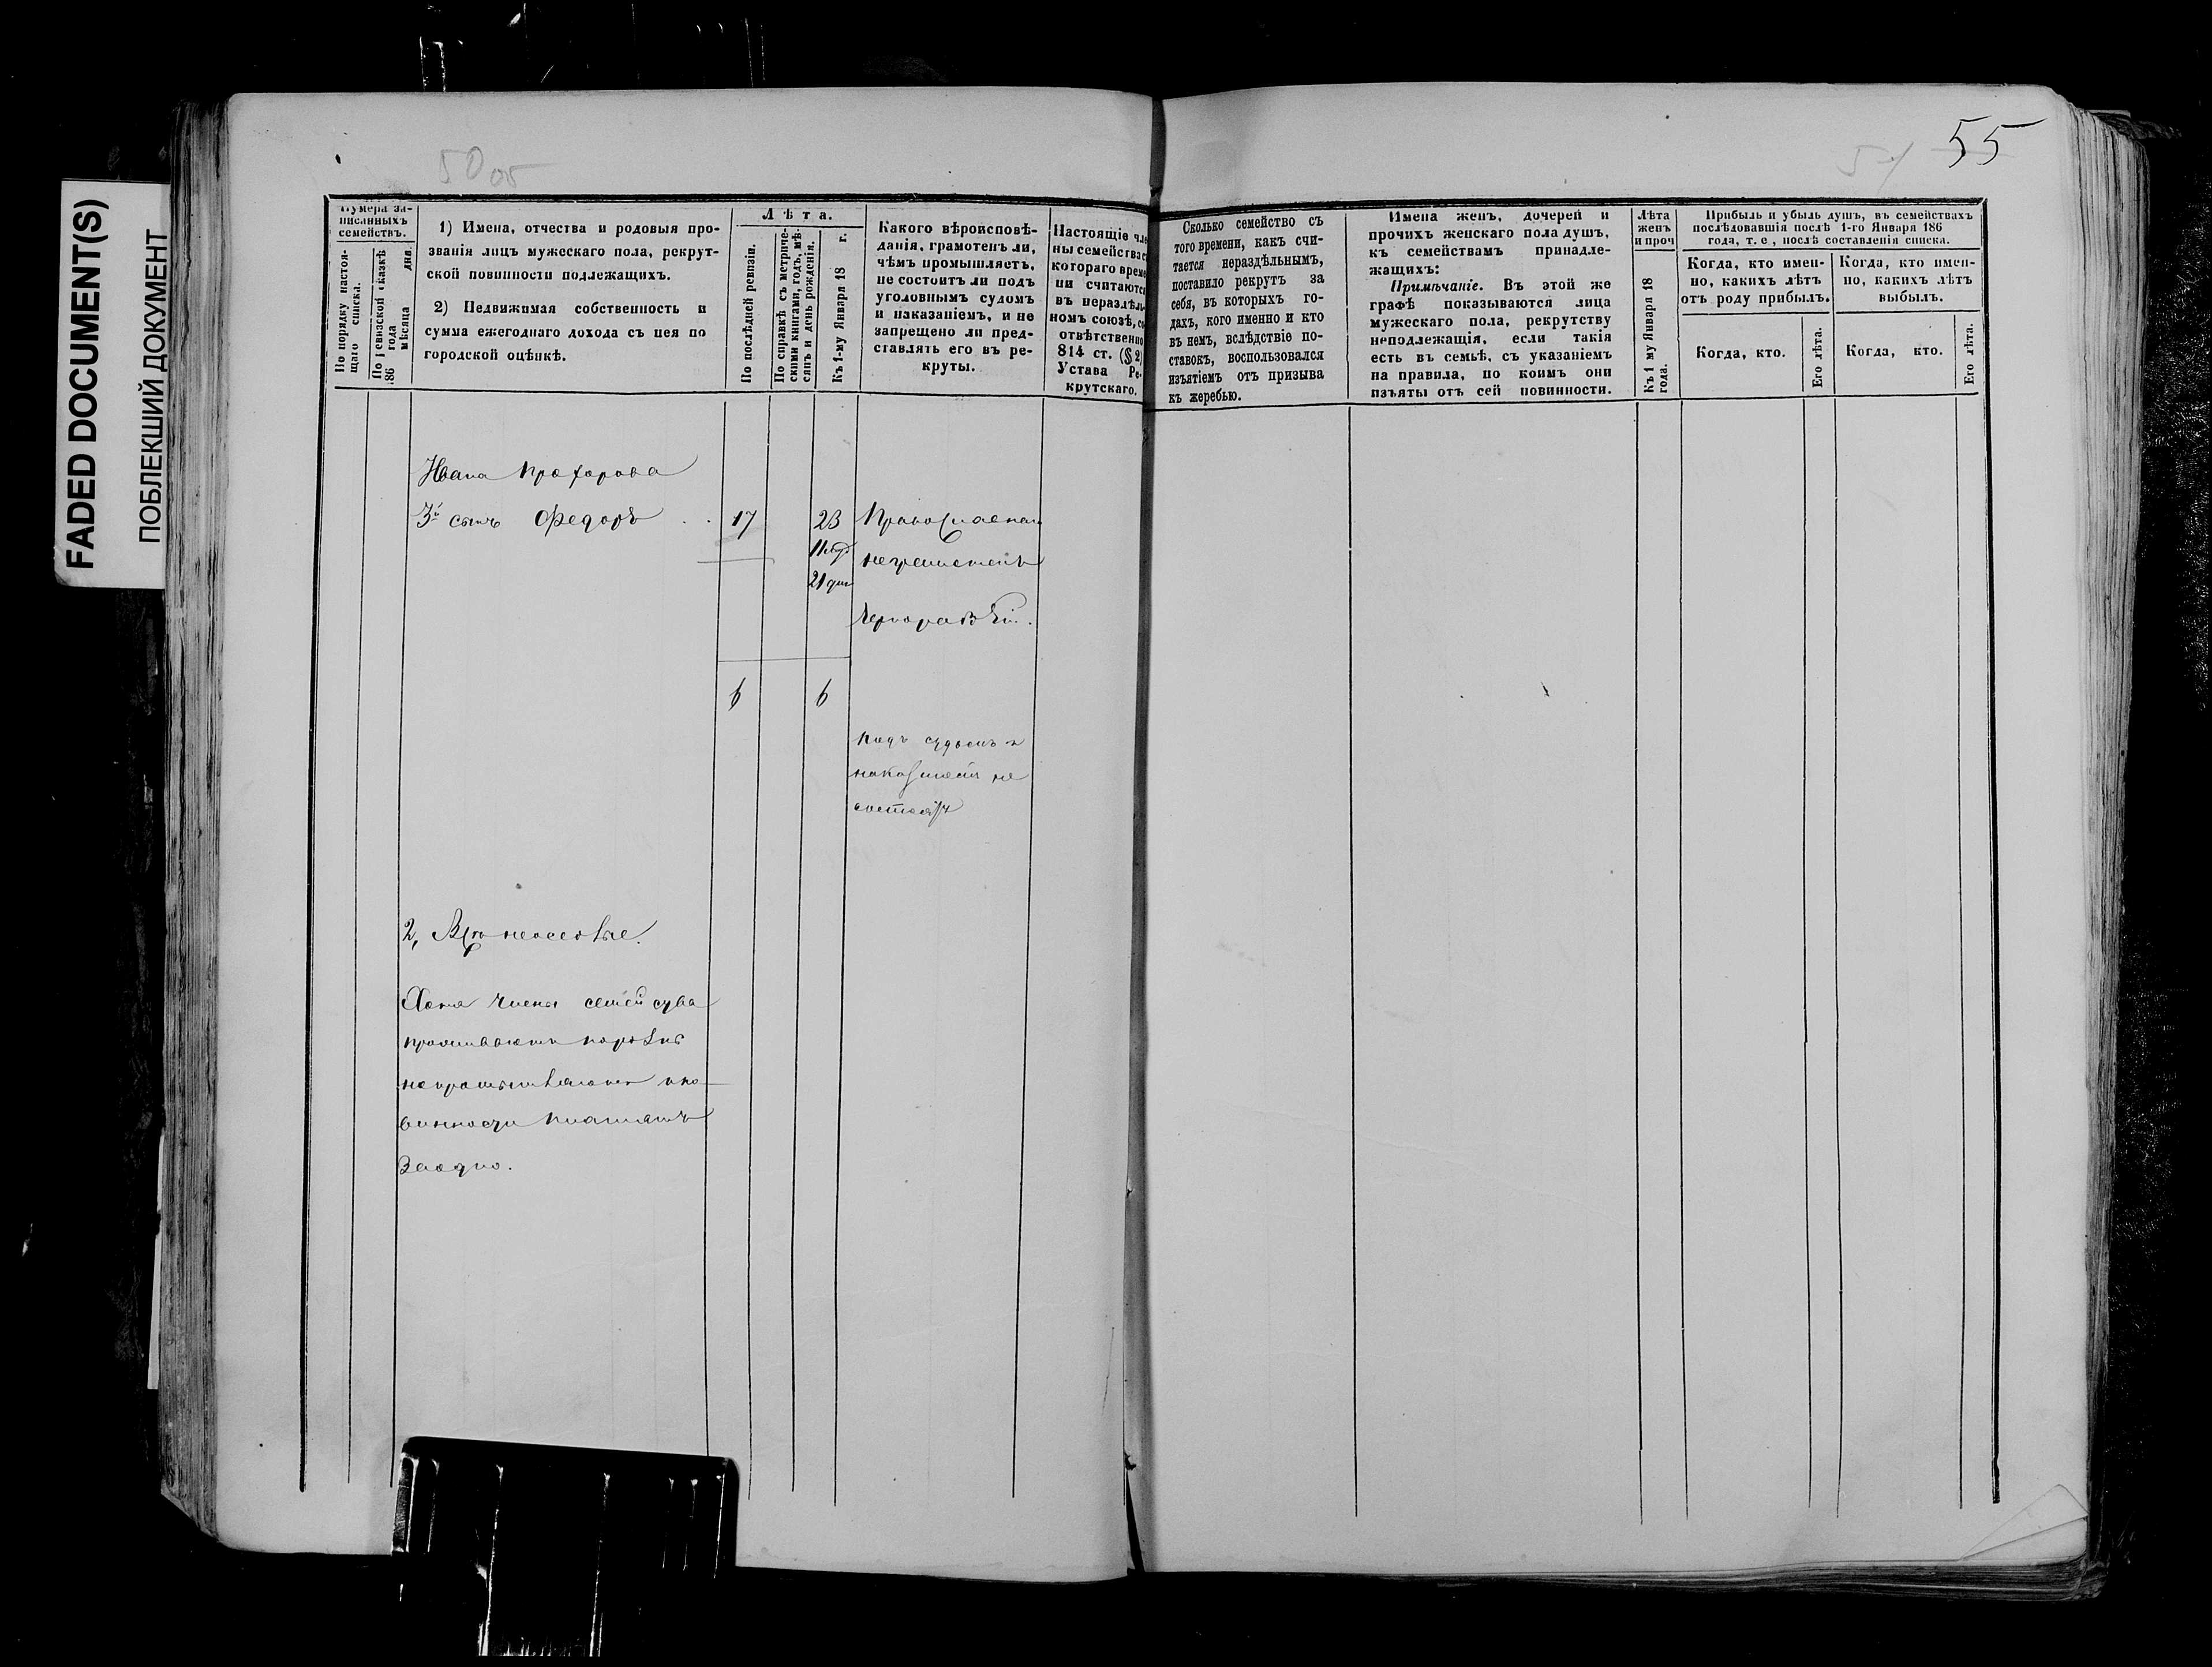 FADED DOCUMENT(S)
ПОБЛЕКШИЙ ДОКУМЕНТ
50
55
Нумера за-
писанныхъ
семействъ.
По порядку настоя-
щаго списка.
По ревизской сказкѣ
186 года
мѣсяца дня.
1) Имена, отчества и родовыя про-
званія лицъ мужескаго пола, рекрут-
ской повинности подлежащихъ.
2) Недвижимая собственность и
сумма ежегоднаго дохода съ нея по
городской оцѣнкѣ.
Лѣта.
По послѣдней ревизіи.
По справкѣ съ метриче-
скими книгами, годъ, мѣ-
сяцъ и день рожденія.
Къ 1-му Января 18 г.
Какого вѣроисповѣ-
данія, грамотенъ ли,
чѣмъ промышляетъ,
не состоитъ ли подъ
уголовнымъ судомъ
и наказаніемъ, и не
запрещено ли пред-
ставлять его въ ре-
круты.
Настоящіе чле
ны семейства с
котораго време
ни считаются
въ нераздѣль
номъ союзѣ, со
отвѣтственно
814 ст. (§ 2)
Устава Ре-
крутскаго.
Сколько семейство съ
того времени, какъ счи-
тается нераздѣльнымъ,
поставило рекрутъ за
себя, въ которыхъ го-
дахъ, кого именно и кто
въ немъ, вслѣдствіе по-
ставокъ, воспользовался
изъятіемъ отъ призыва
къ жеребью.
Имена женъ, дочерей и
прочихъ женскаго пола душъ,
къ семействамъ принадле-
жащихъ:
Примѣчаніе. Въ этой же
графѣ показываются лица
мужескаго пола, рекрутству
неподлежащія, если такія
есть въ семьѣ, съ указаніемъ
на правила, по коимъ они
изъяты отъ сей повинности.
Лѣта
женъ
и проч
Къ 1 му Января 18
года.
Прибыль и убыль душъ, въ семействахъ
послѣдовавшія послѣ 1-го Января 186
года, т. е., послѣ составленія списка.
Когда, кто имен-
но, какихъ лѣтъ
отъ роду прибылъ.
Когда, кто имен-
но, какихъ лѣтъ
выбылъ.
Когда, кто.
Его лѣта.
Когда, кто.
Его лѣта.
Ивана Прохорова
3й сынъ Федоръ . . 17 23 Православнаго
неграмотенъ
21 дня
чернорабочій.
6 6
подъ судомъ и
наказаніемъ не
состоятъ
2,
Хотя члены семейства
проживаютъ порознь
но промышляютъ и по-
винности платятъ
заодно.